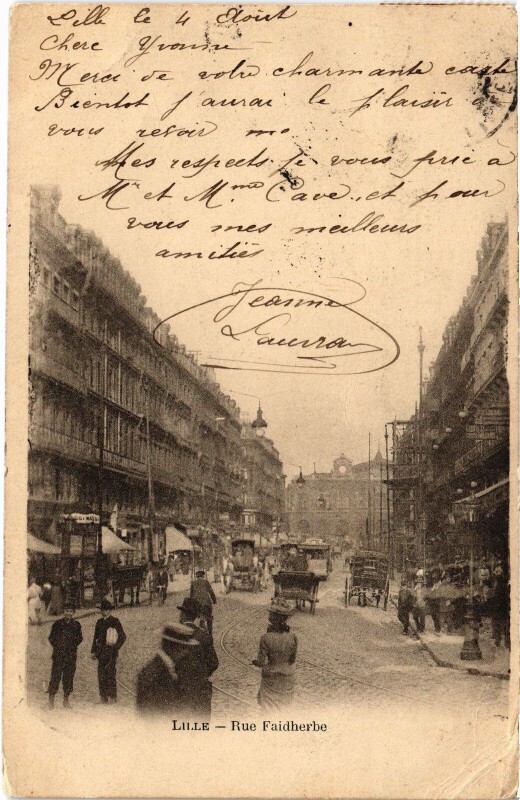 Lille le 4 Août
Chere Yvonne
Merci de votre charmante carte
Bientot j'aurai le plaisir de
vous revoir
Mes respects je vous prie à
Mr et Mme Cave, et pour
vous mes meilleurs
amitiés
Jeanne
LILLE — Rue Faidherbe